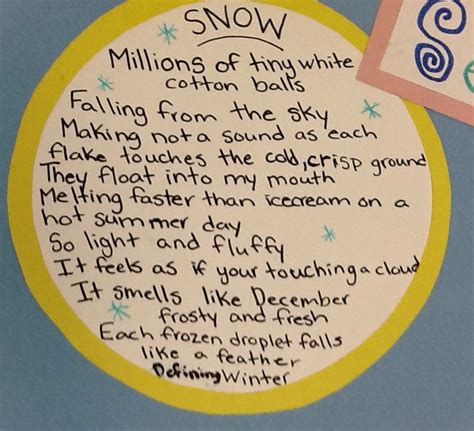 SNOW
Millions of tiny white
cotton balls
Falling from the sky
Making not a sound as each
flake touches the cold, crisp ground
They float into my mouth
Melting faster than icecream on a
hot summer day
So light and fluffy
It feels as if your touching a cloud
It smells like December
frosty and fresh
Each frozen droplet falls
like a feather
Defining Winter